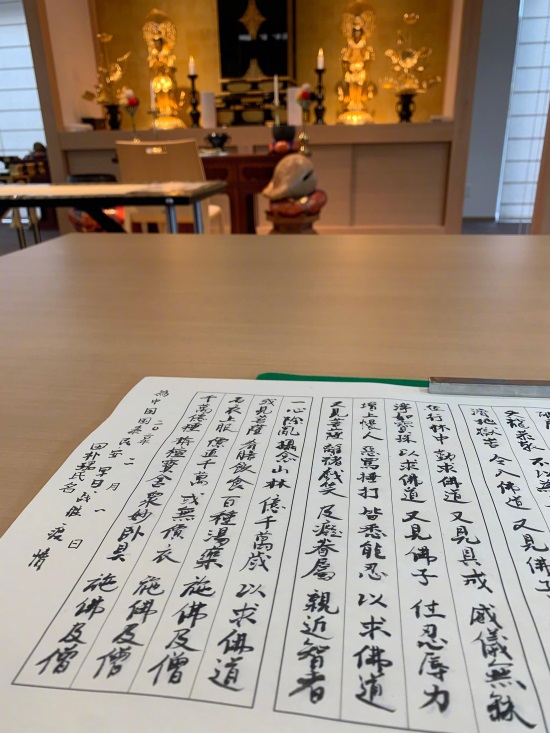 天龍恭敬 不以為
濟地獄苦 令入佛道 又見佛子
經行林中 勤求佛道 又見具戒 威儀無缺
淨如寶珠 以求佛道 又見佛子 住忍辱力
增上慢人 惡罵捶打 皆悉能忍 以求佛道
又見菩薩 離諸戲笑 及癡眷屬 親近智者
一心除亂 攝念山林 億千萬歲 以求佛道
或見菩薩 肴膳飲食 百種湯藥 施佛及僧
名衣上服 價直千萬 或無價衣 施佛及僧
千萬億種 栴檀寶舍 眾妙臥具 施佛及僧
二〇二〇年 二月 一日
為中国国泰民安 早日战胜疫情